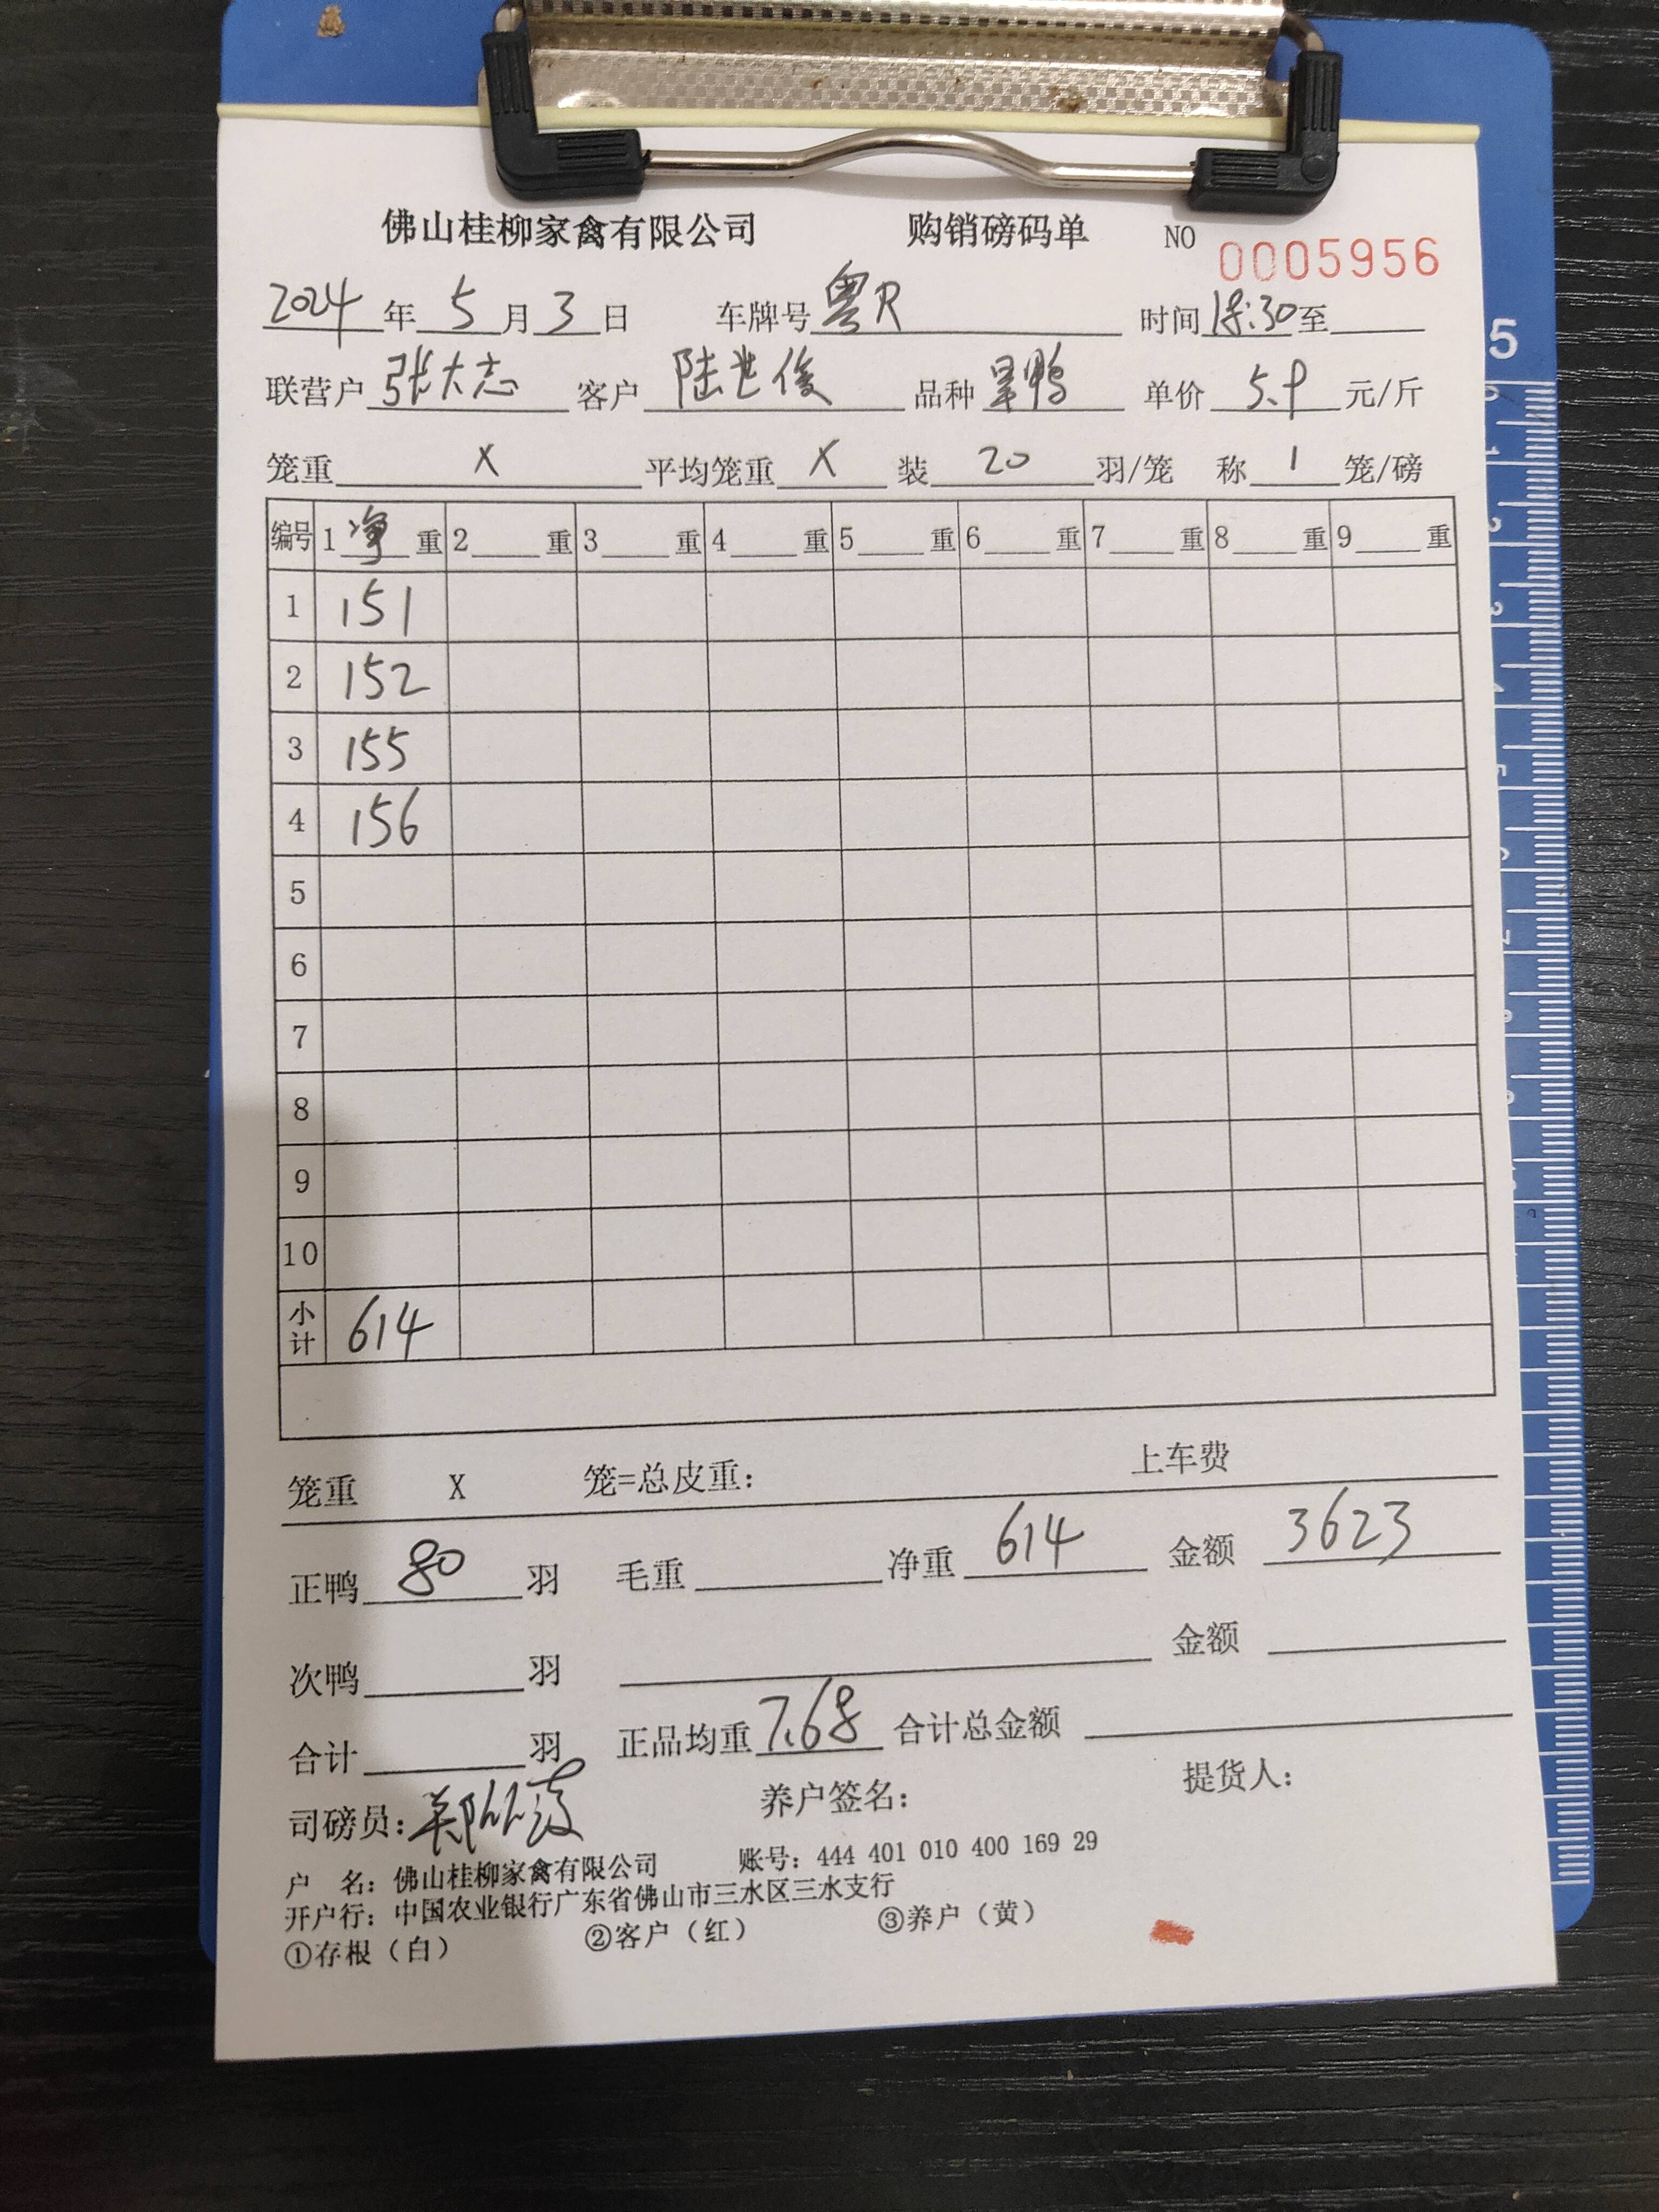 佛山桂柳家禽有限公司 购销磅码单 NO 0005956
2024年5月3日 车牌号粤R 时间18:30至
联营户张大志 客户陆世俊 品种 单价5.9元/斤
笼重X 平均笼重X 装20羽/笼 称1笼/磅
编号 1净重 2重 3重 4重 5重 6重 7重 8重 9重
1 151
2 152
3 155
4 156
5
6
7
8
9
10
小计 614
笼重 X 笼=总皮重: 上车费
正鸭80羽 毛重 净重614 金额3623
次鸭 羽 金额
合计 羽 正品均重7.68 合计总金额
司磅员: 养户签名: 提货人:
户 名: 佛山桂柳家禽有限公司 账号: 444 401 010 400 169 29
开户行: 中国农业银行广东省佛山市三水区三水支行
①存根（白） ②客户（红） ③养户（黄）
5